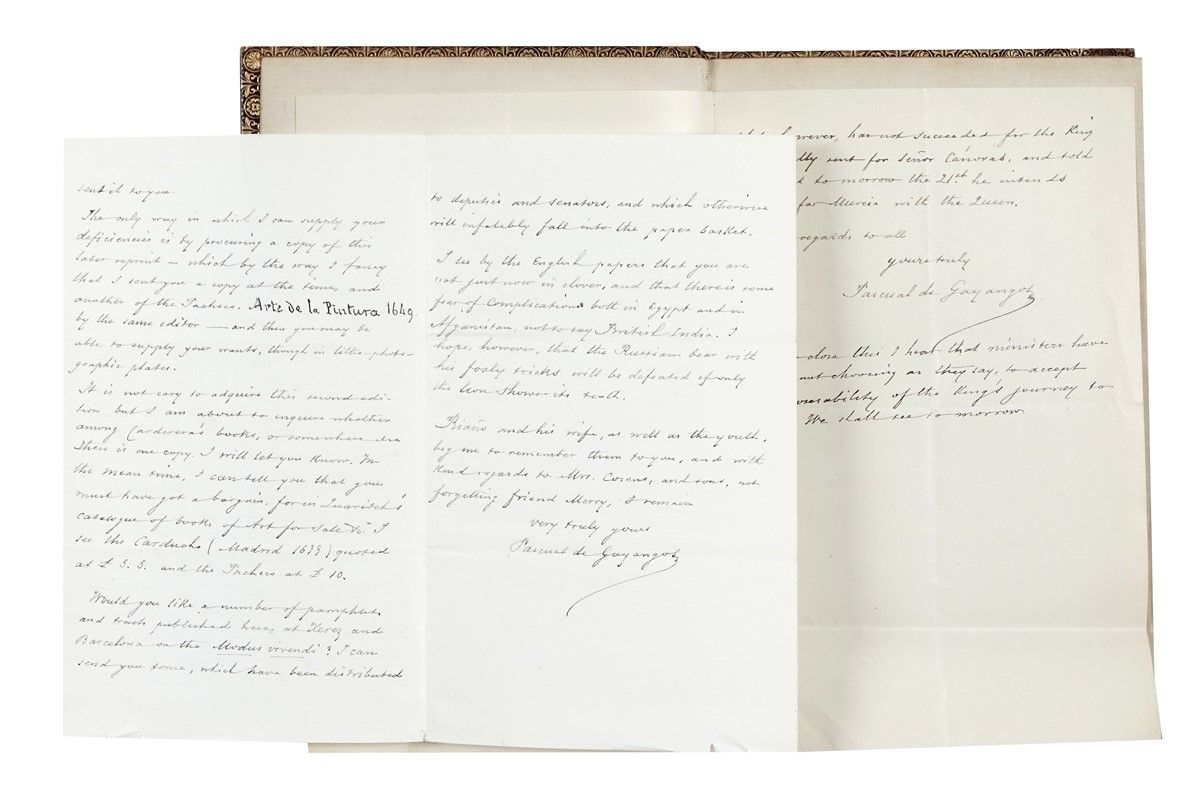 sent it to you.
The only way in which I can supply your
deficiencies is by procuring a copy of this
later reprint — which by the way I fancy
that I sent you a copy at the time, and
another of the Pacheco. Arte de la Pintura 1649.
by the same editor — and then you may be
able to supply your wants, though in litho-photo-
graphic plates.
It is not easy to adquire this second edi-
tion but I am about to inquire whether
among Carderera's books, or somewhere else
there is one copy. I will let you know. In
the mean time, I can tell you that you
must have got a bargain, for in Quaritch's
catalogue of books of Art for Sale &c I
see the Carducho (Madrid 1633) quoted
at £ 5. 5. and the Pacheco at £ 10.
Would you like a number of pamphlets
and tracts published here, at Xerez and
Barcelona on the Modus vivendi? I can
send you some, which have been distributed
to deputies and senators, and which otherwise
will infalebly fall into the paper basket.
I see by the English papers that you are
not just now in clover, and that there is some
fear of Complications both in Egypt and in
Afganistan, not to say British India. I
hope, however, that the Russian bear with
his foxly tricks will be defeated if only
the lion Shows its teeth.
Riaño and his wife, as well as the youth,
beg me to remember them to you, and with
Kind regards to Mrs. Cosens, and sons, not
forgetting friend Merry, I remain
very truly yours
Pascual de Gayangos
however, has not succeeded for the King
sent for Señor Cánovas, and told
to morrow the 21st he intends
for Murcia with the Queen.
regards to all
yours truly
Pascual de Gayangos
close this I hear that ministers have
not choosing as they say, to accept
of the King's journey to
We shall see to morrow.